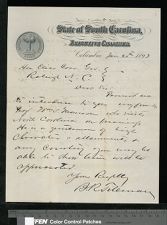 State of South Carolina,
Executive Chamber.
Columbia, Jan 1893
Hon Elias Carr Gov
Raleigh N. C.
Dear Sir
Permit me
to introduce to you my friend
who visits
North Carolina on business
He is a gentleman of high
character &
any courtesy you may be
able to show him will be
appreciated
Yours Respctly
B R Tillman
FEN Color Control Patches